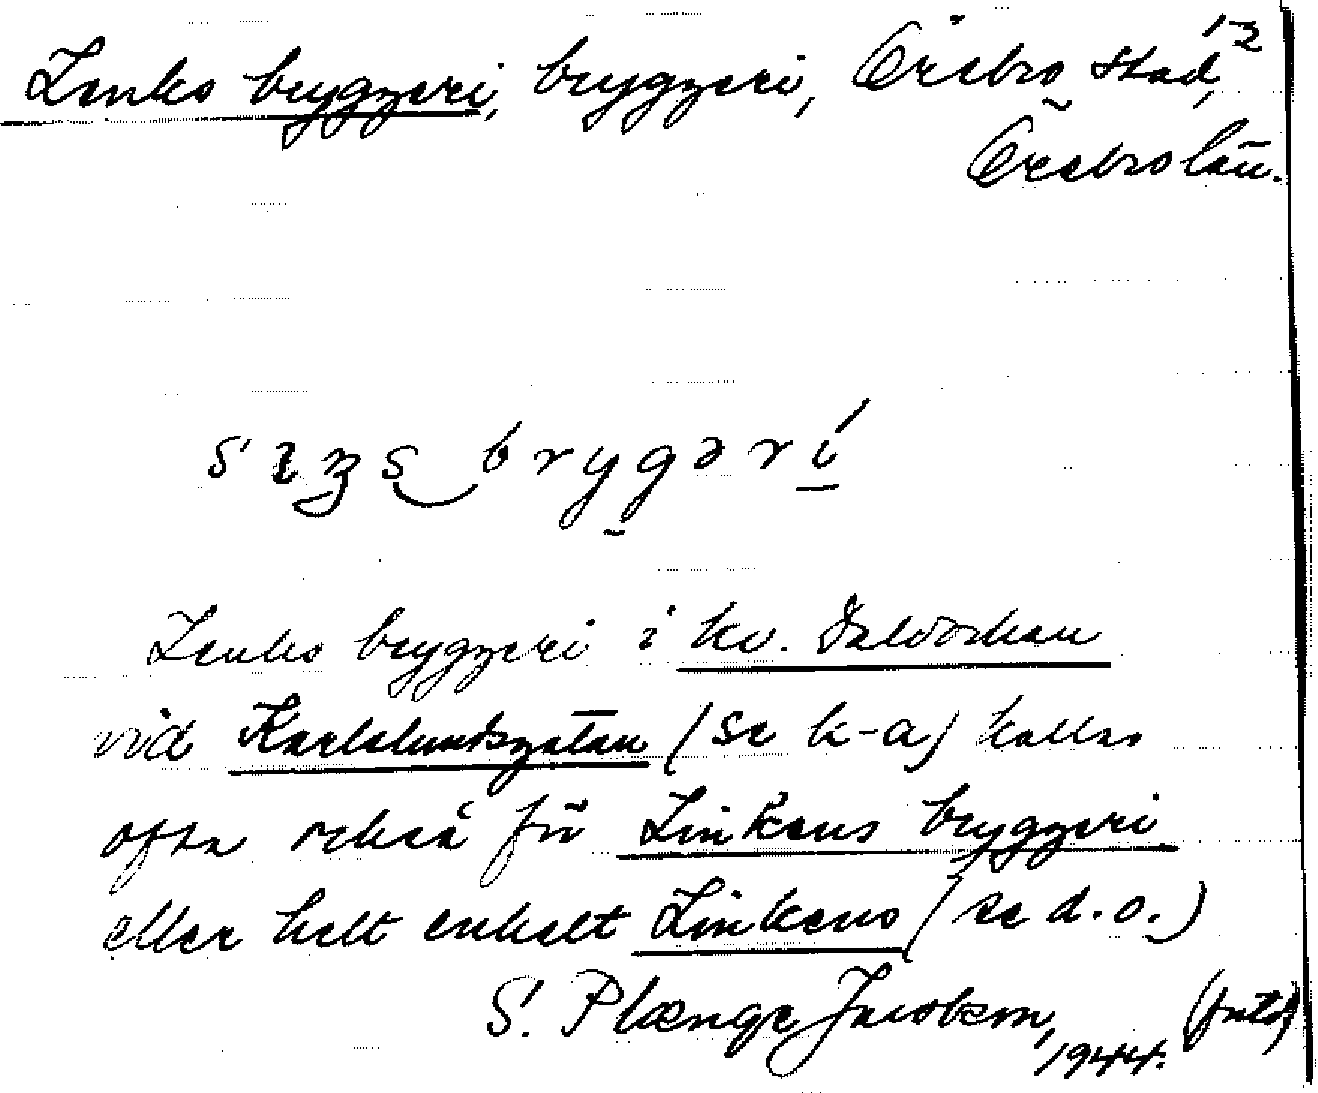 Lenks bryggeri, bryggeri, Örebro stad, 12
Örebro län.
brygəri
Lenks bryggeri i kv.
vid Karlslundsgatan (se k-a) kallas
ofta också för Linkens bryggeri
eller helt enkelt Linkens (se d.o.)
S. Plænge Jacobson,
1944.